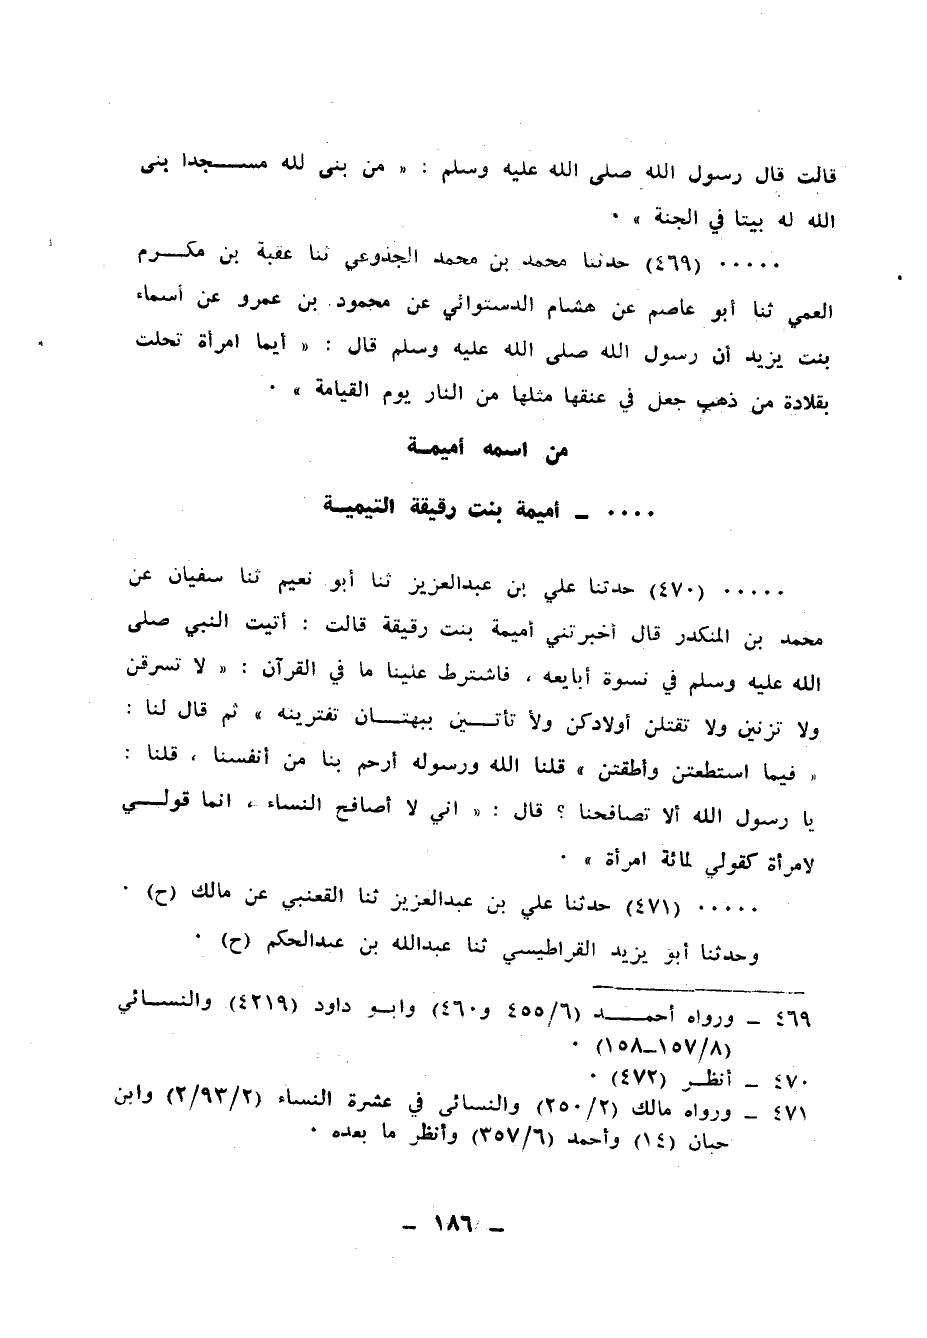 قالت قال رسول الله صلى الله عليه وسلم : « من بنى لله مسـجدا بنى
الله له بيتا في الجنة » ٠
٠٠٠٠٠ (٤٦٩) حدثنا محمد بن محمد الجذوعي ثنا عقبة بن مكـرم
العمي ثنا أبو عاصم عن هشام الدستوائي عن محمود بن عمرو عن أسماء
بنت يزيد أن رسول الله صلى الله عليه وسلم قال : « أيما امرأة تحلت
بقلادة من ذهب جعل في عنقها مثلها من النار يوم القيامة » ٠
من اسمه أميمـة
٠٠٠٠ ـ أميمة بنت رقيقة التيميـة
٠٠٠٠٠ (٤٧٠) حدتنا علي بن عبدالعزيز ثنا أبو نعيم ثنا سفيان عن
محمد بن المنكدر قال أخبرتني أميمة بنت رقيقة قالت : أتيت النبي صلى
الله عليه وسلم في نسوة أبايعه ، فاشترط علينا ما في القرآن : « لا تسرقن
ولا تزنين ولا تقتلن أولادكن ولأ تأتـين ببهتـان تفترينه » ثم قال لنا :
« فيما استطعتن وأطقتن » قلنا الله ورسوله أرحم بنا من أنفسنا ، قلنا :
يا رسول الله ألا تصافحنا ؟ قال : « اني لا أصافح النساء ، انما قولـي
لامرأة كقولي لمائة امرأة » ٠
٠٠٠٠٠ (٤٧١) حدثنا علي بن عبدالعزيز ثنا القعنبي عن مالك (ح) ٠
وحدثنا أبو يزيد القراطيسي ثنا عبدالله بن عبدالحكم (ح) ٠
٤٦٩ ـ ورواه أحمـد (٤٥٥/٦ و٤٦٠) وابـو داود (٤٢١٩) والنسـائي
(١٥٧/٨ـ١٥٨) ٠
٤٧٠ ـ أنظـر (٤٧٢) ٠
٤٧١ ـ ورواه مالك (٢٥٠/٢) والنسائى في عشرة النساء (٢/٩٣/٢) وابن
حبان (١٤) وأحمد (٣٥٧/٦) وأنظر ما بعده ٠
ـ ١٨٦ ـ